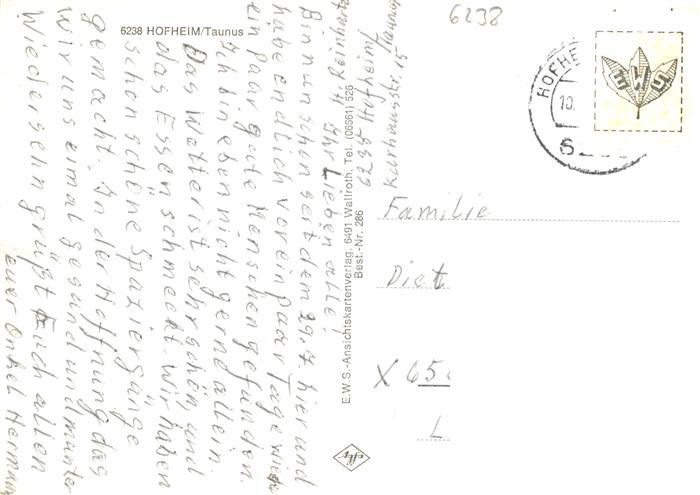 6238 HOFHEIM/Taunus
6238
H. Reinhartz
6238 Hofheim/Taunus
Kurhausstr. 15
Ihr Lieben alle!
Bin nun schon seit dem 29.7. hier und
habe endlich vor ein paar Tage wieder
ein paar gute Menschen gefunden.
Ich bin eben nicht gerne allein.
Das Wetter ist sehr schön, und
das Essen schmeckt. Wir haben
schon schöne Spaziergänge
gemacht. In der Hoffnung das
wir uns einmal gesund und munter
Wiedersehn grüßt Euch allen
euer Onkel Hermann
E.W.S.-Ansichtskartenverlag, 6491 Wallroth, Tel. (06661) 526
Best.-Nr. 286
HOFHE
10.
EWS
Familie
Diet
X 65
L
Agfa